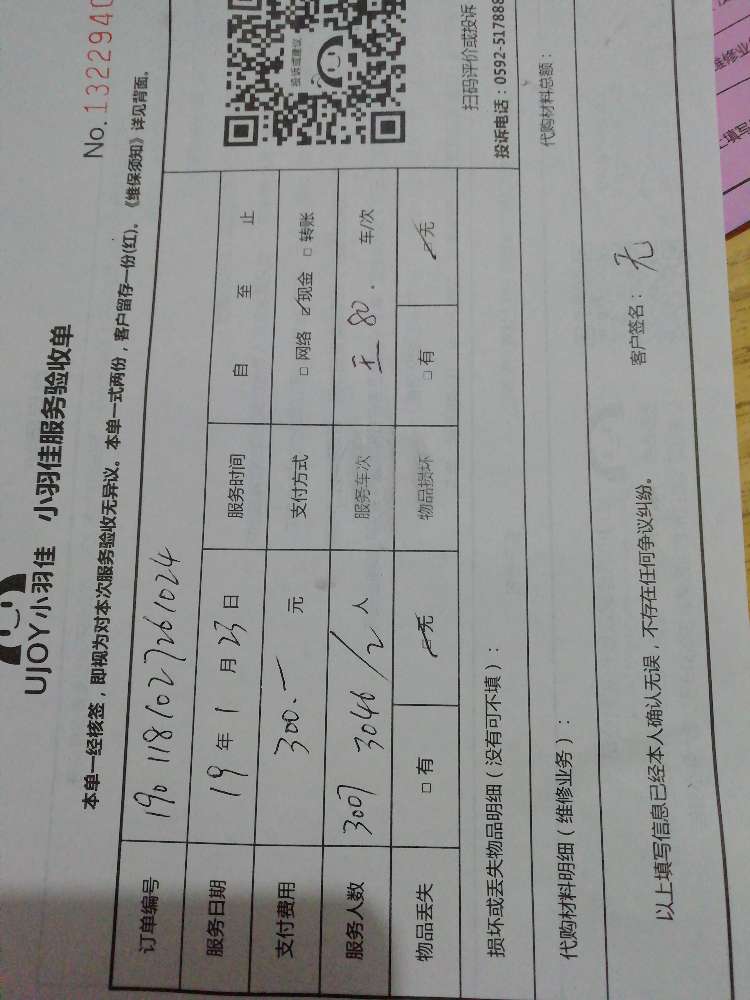 UJOY小羽佳 小羽佳服务验收单
No.1322940
本单一经核签，即视为对本次服务验收无异议。本单一式两份，客户留存一份(红)。《维保须知》详见背面。
订单编号 1901181027261024
服务日期 19年1月23日 服务时间 自 至 止
支付费用 300.一 元 支付方式 □网络 ☑现金 □转账
服务人数 3007 3046/2人 服务车次 80. 车/次
物品丢失 □有 ☑无 物品损坏 □有 ☑无
投诉或建议
扫码评价或投诉
投诉电话：0592-517888
损坏或丢失物品明细（没有可不填）：
代购材料明细（维修业务）： 代购材料总额：
以上填写信息已经本人确认无误，不存在任何争议纠纷。 客户签名：无